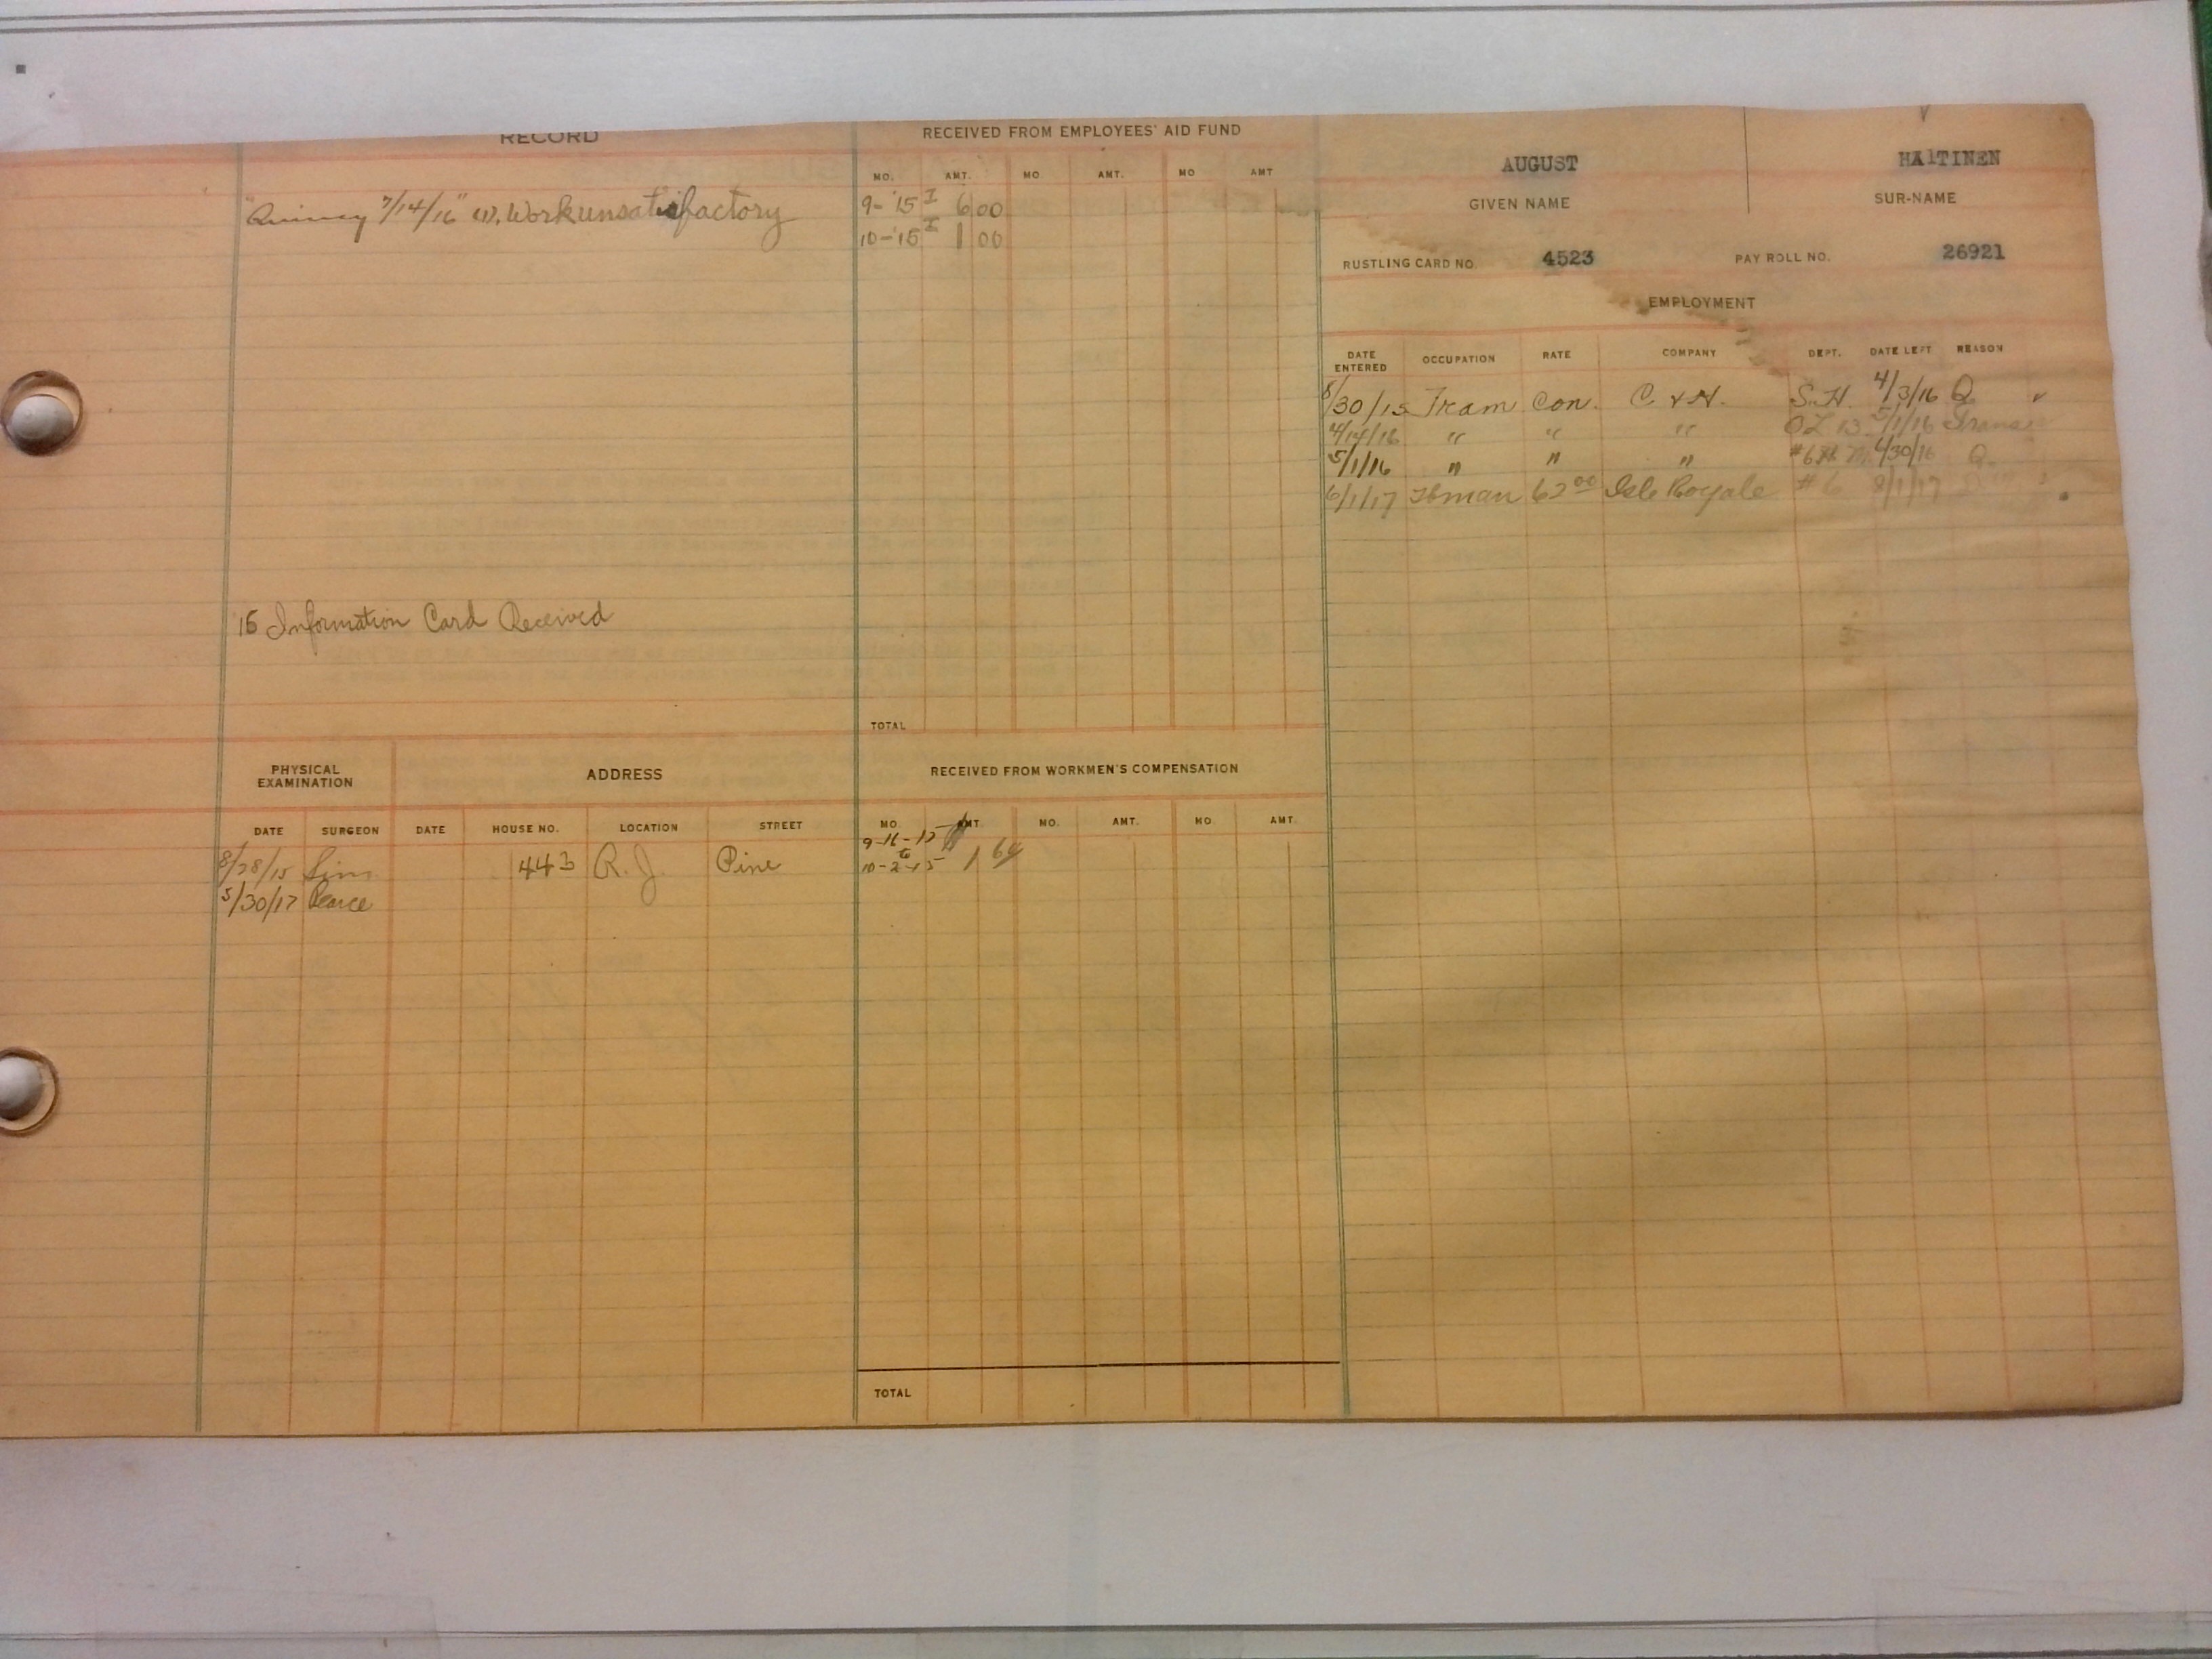 RECORD
"Quincy 7/14/16" (1), Work unsatisfactory
15 Information Card Received
RECEIVED FROM EMPLOYEES' AID FUND
MO. AMT. MO AMT. MO AMT
9-'15 I 6 00
10-'15 I 1 00
TOTAL
AUGUST HAlTINEN
GIVEN NAME SUR-NAME
RUSTLING CARD NO. 4523 PAY ROLL NO. 26921
EMPLOYMENT
DATE ENTERED OCCUPATION RATE COMPANY DEPT. DATE LEFT REASON
8/30/15 Tram Con. C & H. S.H. 4/3/16 Q
4/14/16 " " " 5/1/16
5/1/16 " " " 4/30/16 Q.
6/1/17 62 00 Isle Royale # 6 8/1/17
PHYSICAL EXAMINATION
ADDRESS
DATE SURGEON DATE HOUSE NO. LOCATION STREET
8/28/15 Sim 443 R.J. Pine
5/30/17 Pearce
RECEIVED FROM WORKMEN'S COMPENSATION
MO. AMT. MO. AMT. MO AMT.
9-16-15
to
10-2-15
TOTAL